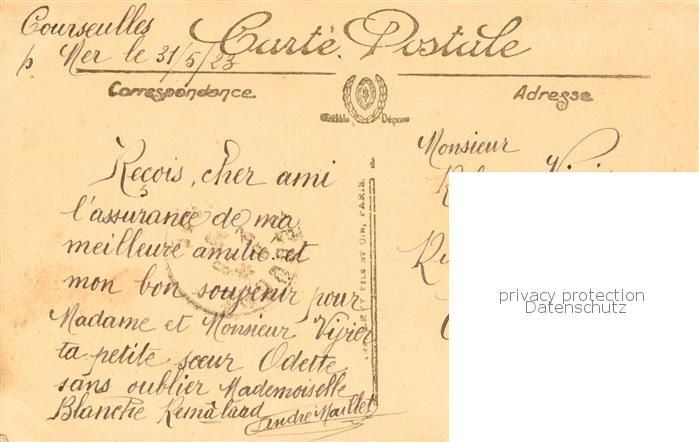 Courseulles
s/ Mer le 31/5/23
Carte Postale
Correspondance
Adresse
Monsieur
Reçois, cher ami
l'assurance de ma
meilleure amitié et
mon bon souvenir pour
Madame et Monsieur Vizier
ta petite sœur Odette
sans oublier Mademoiselle
Blanche Remalard
André Maillet
privacy protection
Datenschutz